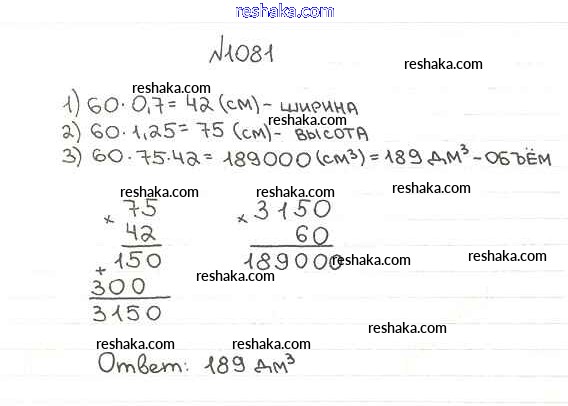 reshaka.com
№1081
reshaka.com
reshaka.com
1) 60·0,7=42 (см)- ширина
reshaka.com
2) 60·1,25=75 (см)- высота
3) 60·75·42=189000(см³)=189 дм³-объём
reshaka.com
reshaka.com
reshaka.com
× 75 × 3150
42 60
+ 150 189000
reshaka.com
reshaka.com
300
3150
reshaka.com
reshaka.com
reshaka.com
Ответ: 189 дм³
reshaka.com